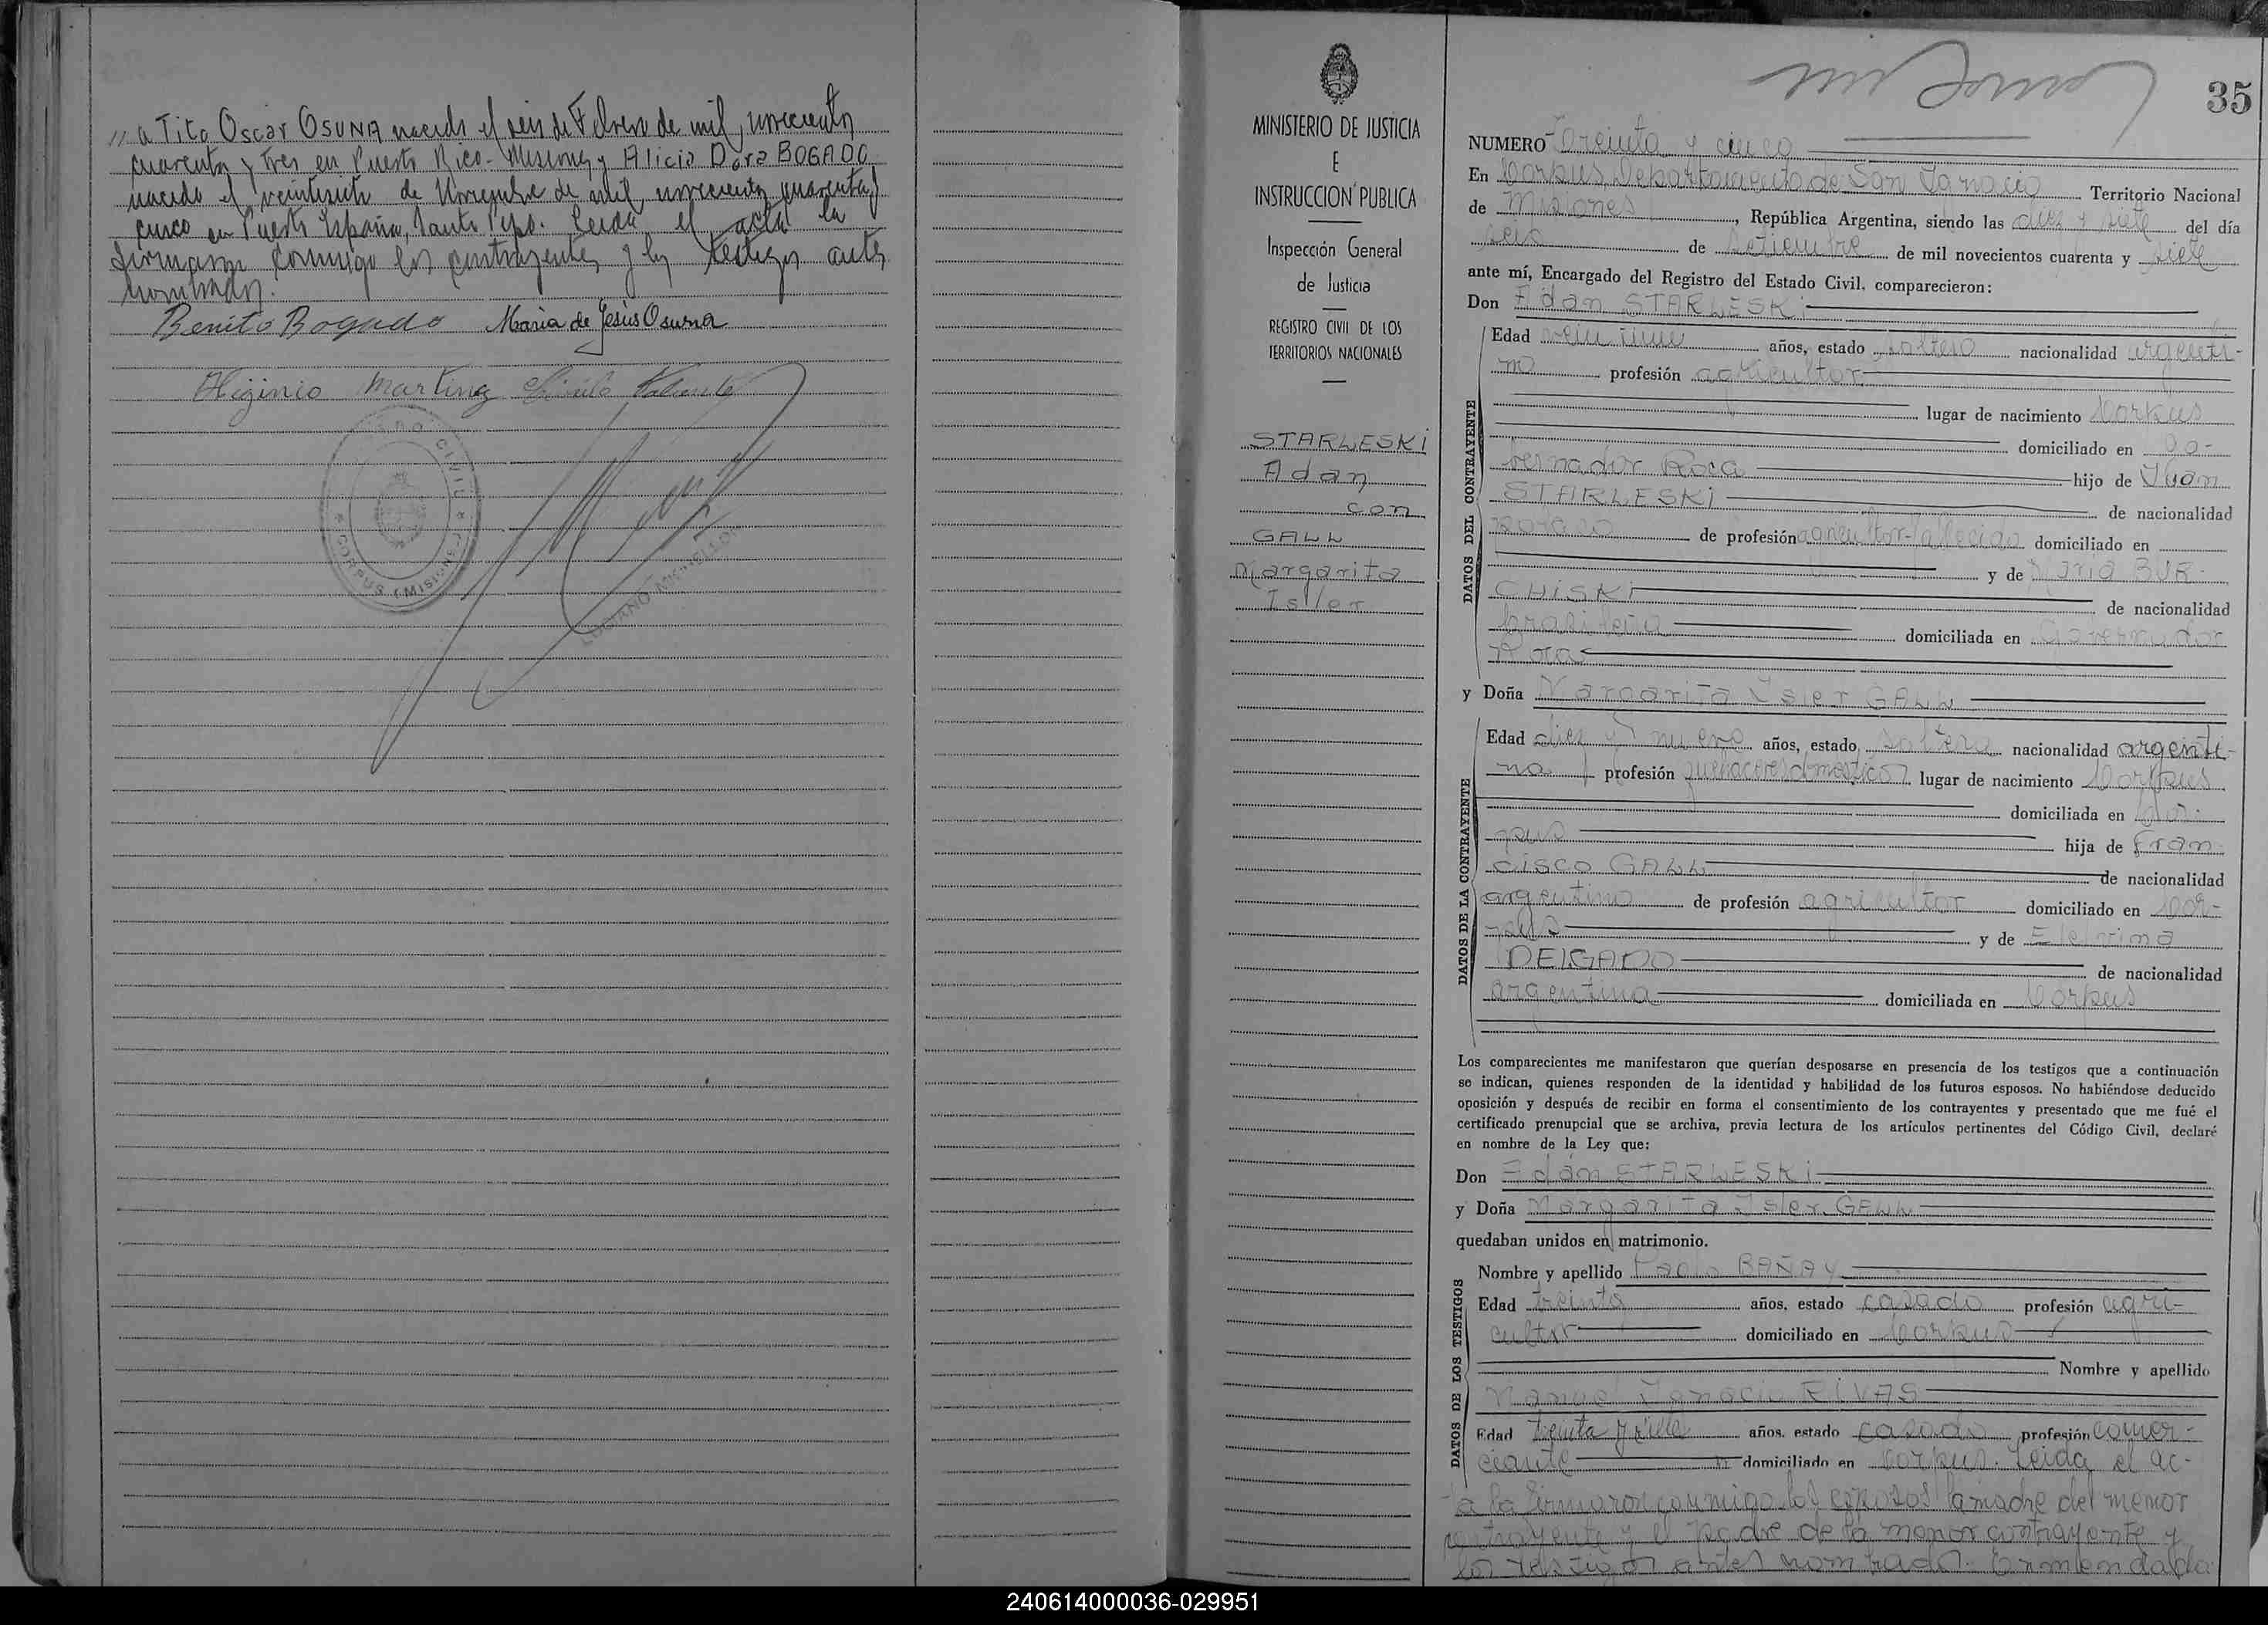 // a Tito Oscar OSUNA nacido el seis de Febrero de mil novecientos
cuarenta y tres en Puerto Rico - Misiones y Alicia Dora BOGADO
nacida el veintisiete de Noviembre de mil novecientos cuarenta y
cinco en Puerto España, Santo Pipó. Leida el acta la
firmaron conmigo los contrayentes y los testigos antes
nombrados.
Benito Bogado Maria de Jesús Osuna
Higinio Martinez
CIVIL
CORPUS (MISIONES)
MINISTERIO DE JUSTICIA
E
INSTRUCCION PUBLICA
Inspección General
de Justicia
REGISTRO CIVIL DE LOS
TERRITORIOS NACIONALES
STARLESKI
Adan
con
GALL
Margarita
Isler
35
NUMERO Treinta y cinco
En Corpus, Departamento de San Ignacio Territorio Nacional
de Misiones, República Argentina, siendo las diez y siete del día
seis de Setiembre de mil novecientos cuarenta y siete
ante mí, Encargado del Registro del Estado Civil, comparecieron:
Don Adán STARLESKI
DATOS DEL CONTRAYENTE
Edad años, estado soltero nacionalidad argenti-
no profesión agricultor
lugar de nacimiento Corpus
domiciliado en Go-
bernador Roca hijo de Juan
STARLESKI de nacionalidad
polaco de profesión agricultor-fallecido domiciliado en
y de María BUR-
CHISKI de nacionalidad
brasileña domiciliada en Gobernador
Roca
y Doña Margarita Isler GALL
DATOS DE LA CONTRAYENTE
Edad diez y nueve años, estado soltera nacionalidad argenti-
na profesión quehaceres domésticos lugar de nacimiento Corpus
domiciliada en Cor-
pus hija de Fran-
cisco GALL de nacionalidad
argentino de profesión agricultor domiciliado en Cor-
pus y de Etelvina
DELGADO de nacionalidad
argentina domiciliada en Corpus
Los comparecientes me manifestaron que querían desposarse en presencia de los testigos que a continuación
se indican, quienes responden de la identidad y habilidad de los futuros esposos. No habiéndose deducido
oposición y después de recibir en forma el consentimiento de los contrayentes y presentado que me fué el
certificado prenupcial que se archiva, previa lectura de los artículos pertinentes del Código Civil, declaré
en nombre de la Ley que:
Don Adán STARLESKI
y Doña Margarita Isler GALL
quedaban unidos en matrimonio.
DATOS DE LOS TESTIGOS
Nombre y apellido Pablo BAÑAY
Edad treinta años, estado casado profesión agri-
cultor domiciliado en Corpus
Nombre y apellido
Manuel Ignacio RIVAS
Edad treinta y siete años, estado casado profesión comer-
ciante domiciliado en Corpus. Leida el ac-
ta la firmaron conmigo los esposos la madre del menor
contrayente y el padre de la menor contrayente y
los testigos antes nombrados. Enmendado:
240614000036-029951